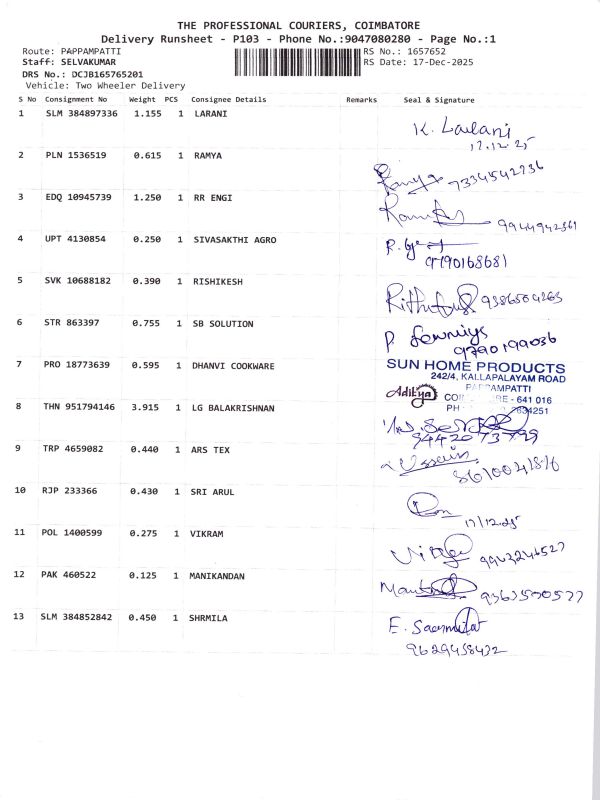 THE PROFESSIONAL COURIERS, COIMBATORE
Delivery Runsheet - P103 - Phone No.:9047080280 - Page No.:1
Route: PAPPAMPATTI RS No.: 1657652
Staff: SELVAKUMAR RS Date: 17-Dec-2025
DRS No.: DCJB165765201
Vehicle: Two Wheeler Delivery
S No Consignment No Weight PCS Consignee Details Remarks Seal & Signature
1 SLM 384897336 1.155 1 LARANI
K. Lailani
17.12.25
2 PLN 1536519 0.615 1 RAMYA
Ramya 7334542736
3 EDQ 10945739 1.250 1 RR ENGI
9944942361
4 UPT 4130854 0.250 1 SIVASAKTHI AGRO
9790168681
5 SVK 10688182 0.390 1 RISHIKESH
9386504265
6 STR 863397 0.755 1 SB SOLUTION
P
9790199036
7 PRO 18773639 0.595 1 DHANVI COOKWARE
SUN HOME PRODUCTS
242/4, KALLAPALAYAM ROAD
PAPPAMPATTI
Aditya - 641 016
PH 2634251
8 THN 951794146 3.915 1 LG BALAKRISHNAN
9442073799
9 TRP 4659082 0.440 1 ARS TEX
8610041816
10 RJP 233366 0.430 1 SRI ARUL
17/12.25
11 POL 1400599 0.275 1 VIKRAM
9943246527
12 PAK 460522 0.125 1 MANIKANDAN
9361500577
13 SLM 384852842 0.450 1 SHRMILA
E.
9629458432